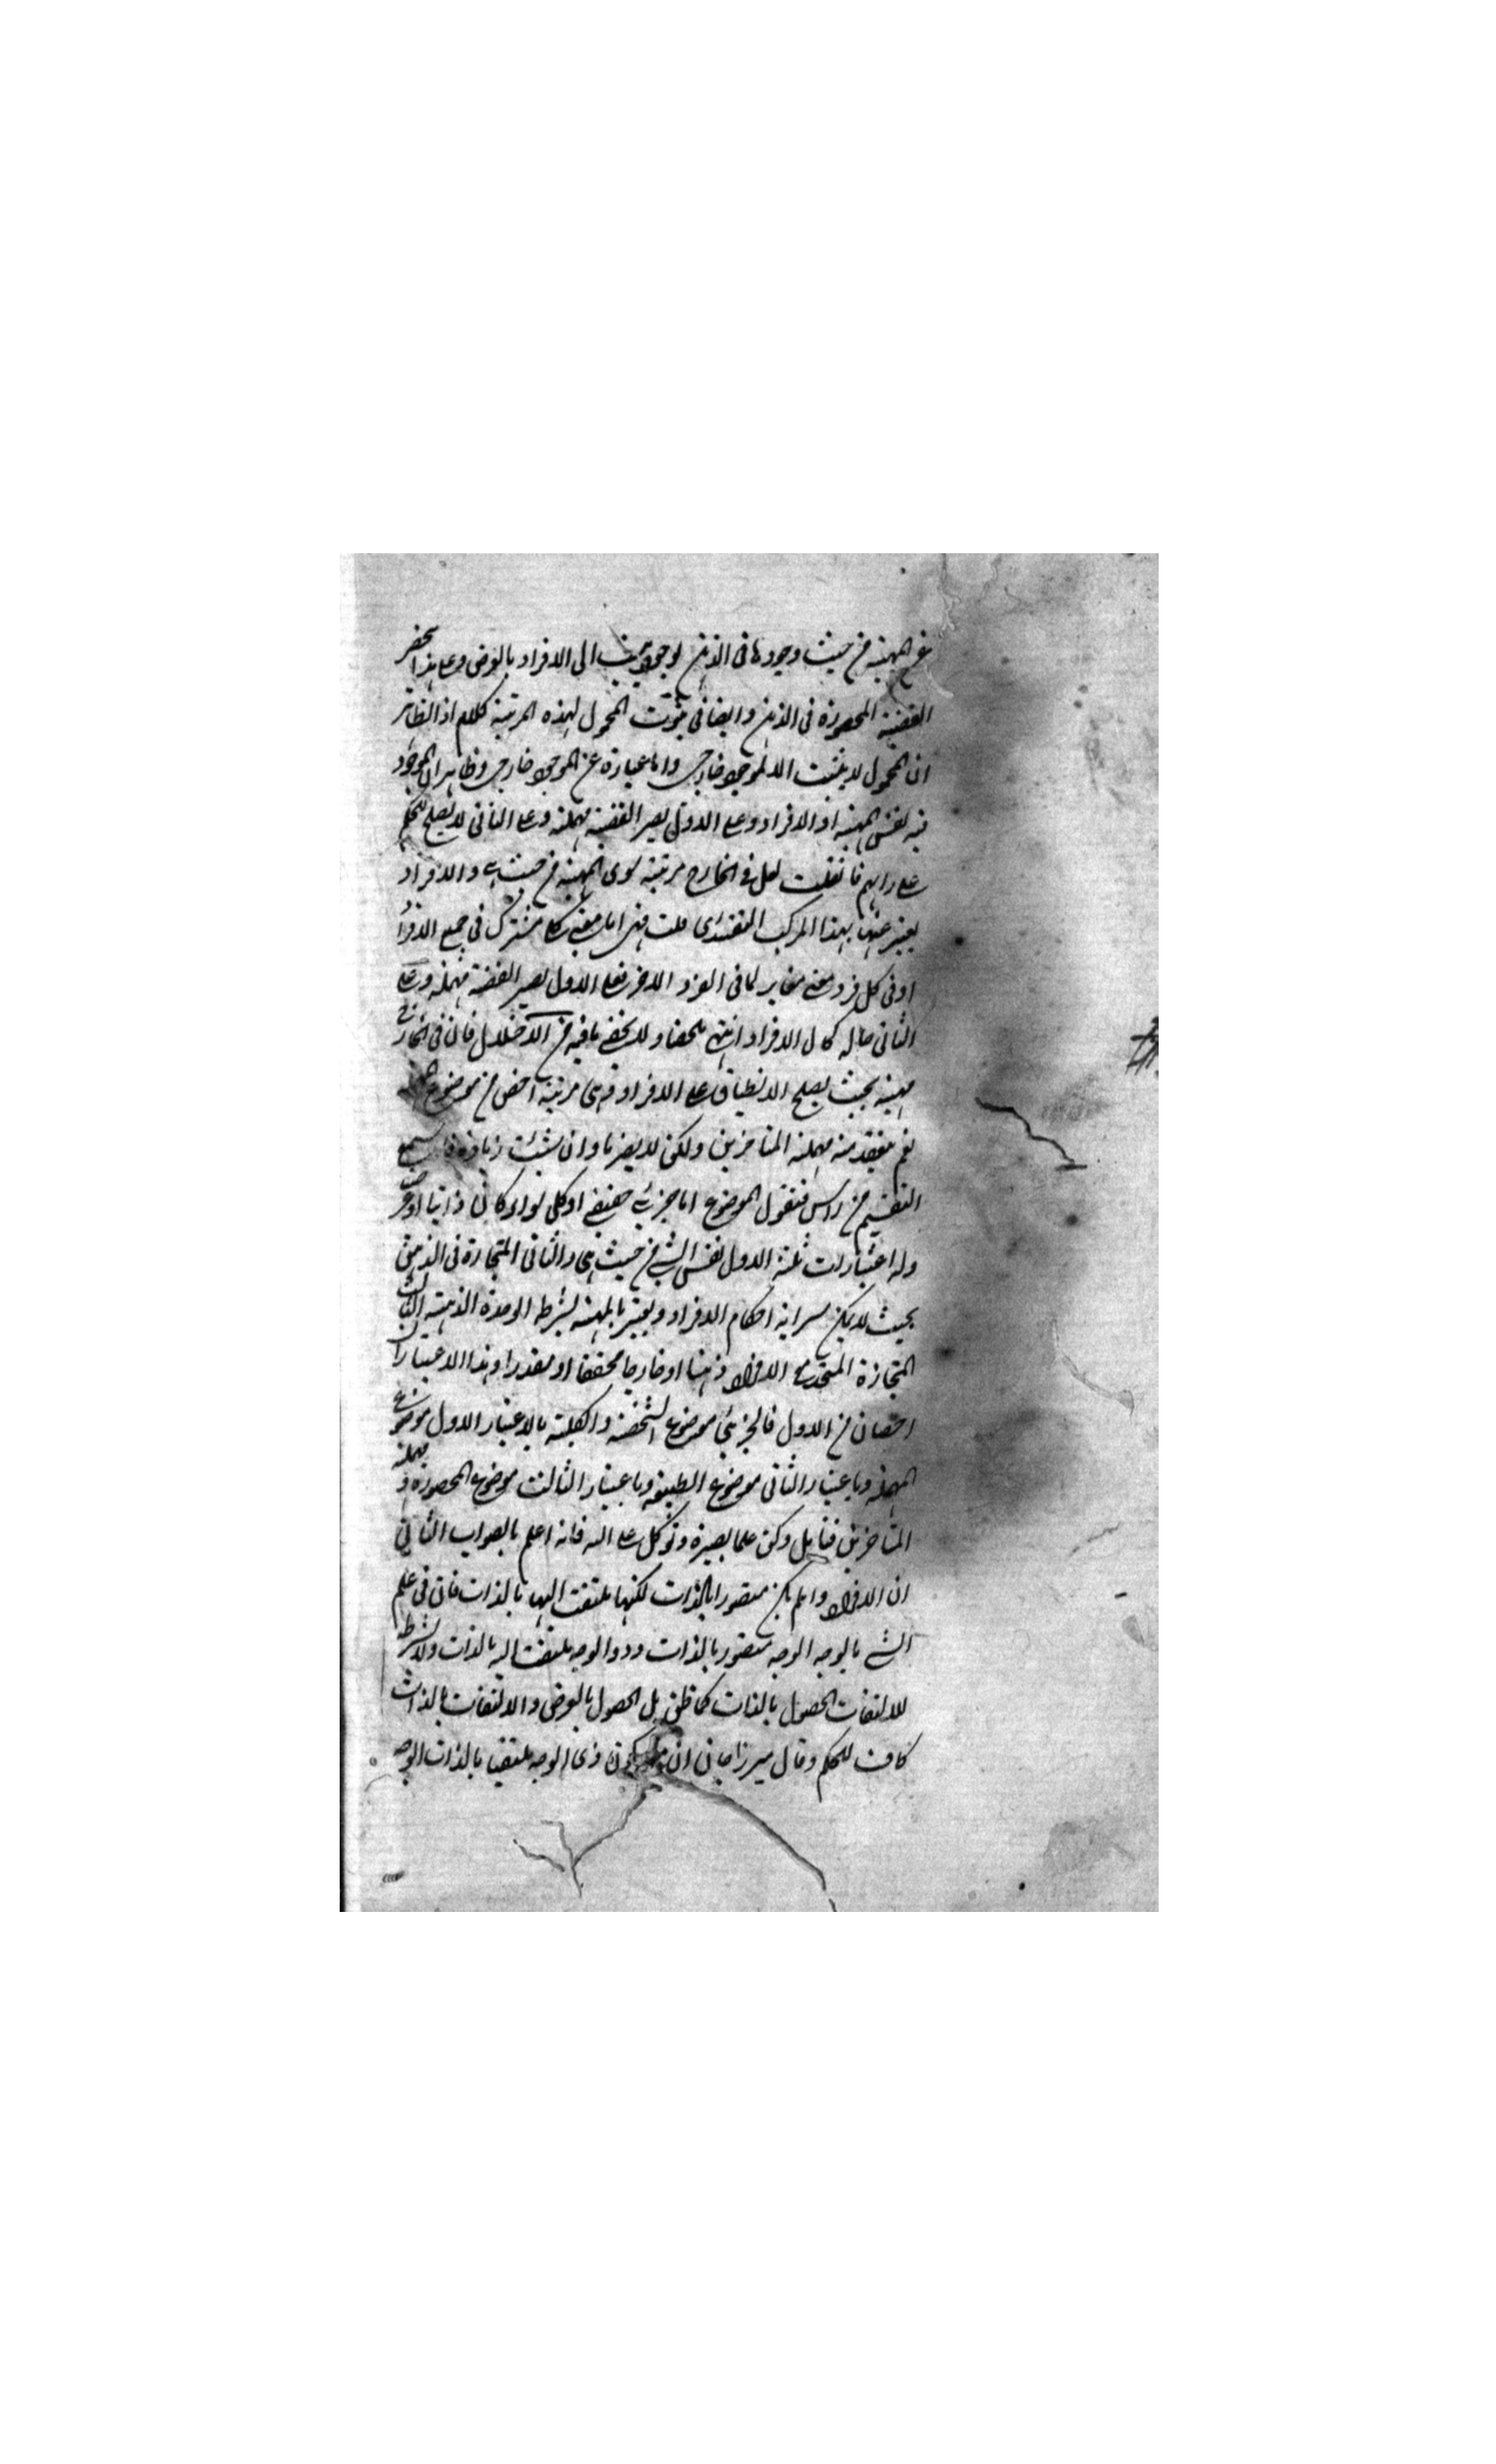 عن المهية من حيث وجودها فى الذهن لوجود ينسب الى الافراد بالعرض وعلى هذا ينحصر
القضية المحصورة فى الذهن وايضا فى ثبوت المحمول لهذه المرتبة كلام اذ الظاهر
ان المحمول لا يثبت الا لموجود خارجى واما عبارة عن الموجود خارجى وظاهر ان الموجود
فيه نفس المهية او الافراد وعلى الاول يصير القضية مهملة وعلى الثانى لا يصلح للحكم
على رايهم فان قلت لعل فى الخارج مرتبة سوى المهية من حيث هى والافراد
يعبر عنها بهذا المركب التقييدى قلت هى اما معنى مشترك فى جميع الافراد
او فى كل فرد معنى مغاير لما فى الفرد الاخر فعلى الاول يصير القضية مهملة وعلى
الثانى حاله كحال الافراد انتهى ملخصا ولا يخفى ما فيه من الاختلال فان فى الخارج
مهية بحيث يصلح الانطباق على الافراد وهى مرتبة اخص من موضوع
نعم ينعقد منه مهملة المتاخرين ولكن لا يضرنا وان شئت زيادة فاسمع
التقسيم من راس فنقول الموضوع اما جزئى حقيقى او كلى سواء كان ذاتيا او عرضيا
وله اعتبارات ثلثة الاول نفس الشى من حيث هى والثانى المتحازة فى الذهن
بحيث لا يمكن سراية احكام الافراد ويعبر بالمهية بشرط الوحدة الذهنية الثالث
المتحازة المتحد مع الافراد ذهنا او خارجا محققا او مقدرا وهذا الاعتباران
اخصان من الاول فالجزئى موضوع الشخصية والكلية بالاعتبار الاول موضوع
المهملة وباعتبار الثانى موضوع الطبيعية وباعتبار الثالث موضوع المحصورة و مهملة
المتاخرين فتامل وكن على بصيرة وتوكل على الله فانه اعلم بالصواب الثانى
ان الافراد وان لم يكن متصورا بالذات لكنها ملتفت اليها بالذات فان فى علم
الشى بالوجه الوجه متصور بالذات وذو الوجه ملتفت اليه بالذات ولا يشترط
للالتفات الحصول بالذات كما ظن بل الحصول بالعرض والالتفات بالذات
كاف للحكم وقال ميرزاجان ان كون ذى الوجه ملتفتا بالذات الوجه